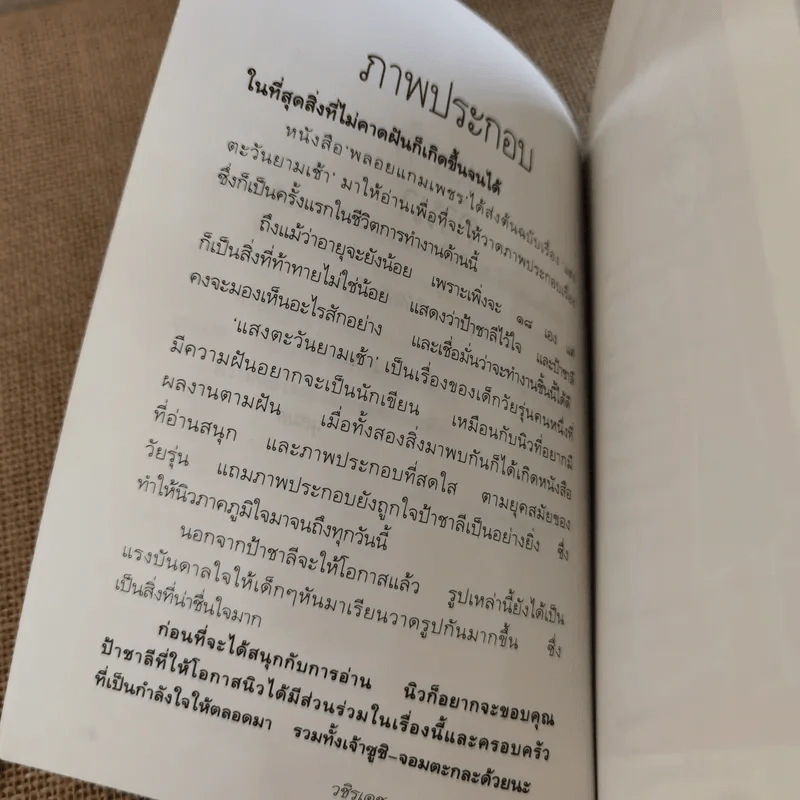 ภาพประกอบ
ในที่สุดสิ่งที่ไม่คาดฝันก็เกิดขึ้นจนได้
หนังสือ 'พลอยแกมเพชร' ได้ส่งต้นฉบับเรื่อง 'แสง
ตะวันยามเช้า' มาให้อ่านเพื่อที่จะให้วาดภาพประกอบเรื่อง
ซึ่งก็เป็นครั้งแรกในชีวิตการทำงานด้านนี้
ถึงแม้ว่าอายุจะยังน้อย เพราะเพิ่งจะ ๑๘ เอง แต่
ก็เป็นสิ่งที่ท้าทายไม่ใช่น้อย แสดงว่าป้าชาลีไว้ใจ และป้าชาลี
คงจะมองเห็นอะไรสักอย่าง และเชื่อมั่นว่าจะทำงานชิ้นนี้ได้ดี
'แสงตะวันยามเช้า' เป็นเรื่องของเด็กวัยรุ่นคนหนึ่งที่
มีความฝันอยากจะเป็นนักเขียน เหมือนกับนิวที่อยากมี
ผลงานตามฝัน เมื่อทั้งสองสิ่งมาพบกันก็ได้เกิดหนังสือ
ที่อ่านสนุก และภาพประกอบที่สดใส ตามยุคสมัยของ
วัยรุ่น แถมภาพประกอบยังถูกใจป้าชาลีเป็นอย่างยิ่ง ซึ่ง
ทำให้นิวภาคภูมิใจมาจนถึงทุกวันนี้
นอกจากป้าชาลีจะให้โอกาสแล้ว รูปเหล่านี้ยังได้เป็น
แรงบันดาลใจให้เด็กๆหันมาเรียนวาดรูปกันมากขึ้น ซึ่ง
เป็นสิ่งที่น่าชื่นใจมาก
ก่อนที่จะได้สนุกกับการอ่าน นิวก็อยากจะขอบคุณ
ป้าชาลีที่ให้โอกาสนิวได้มีส่วนร่วมในเรื่องนี้และครอบครัว
ที่เป็นกำลังใจให้ตลอดมา รวมทั้งเจ้าซูชิ-จอมตะกละด้วยนะ